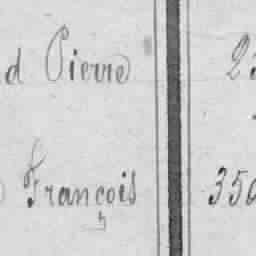 d Pierre 23
François 350